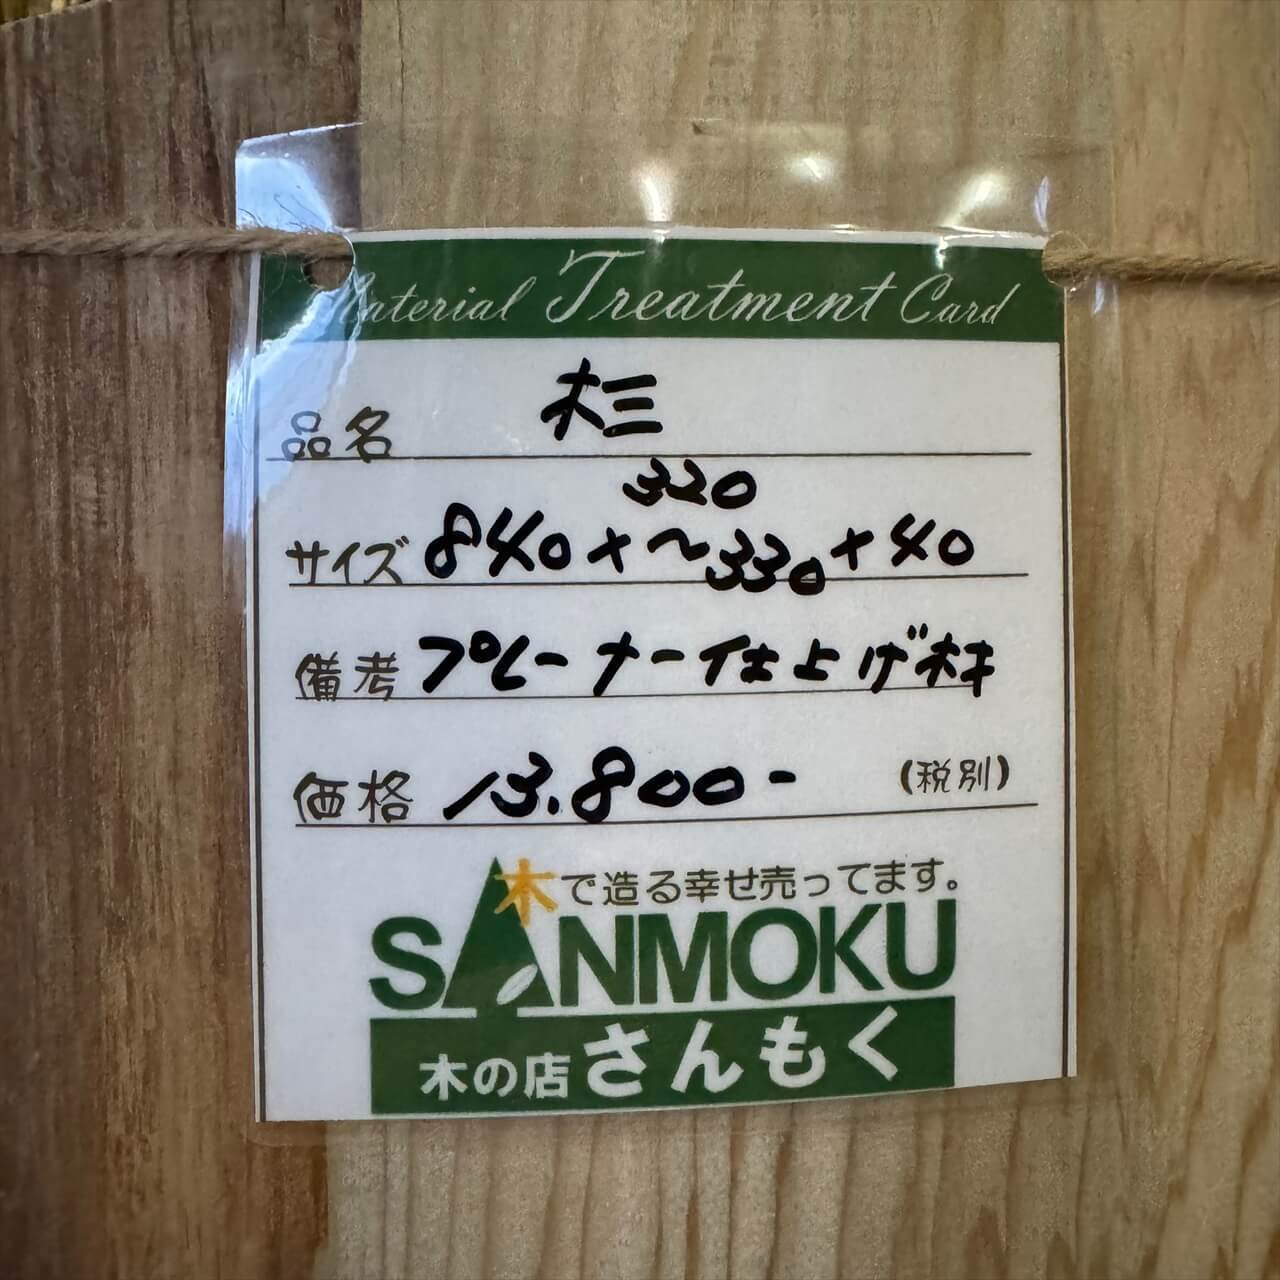 Material Treatment Card
品名 杉
サイズ 840×320～330×40
備考 プレーナー仕上げ材
価格 13.800- (税別)
木で造る幸せ売ってます。
SANMOKU
木の店 さんもく